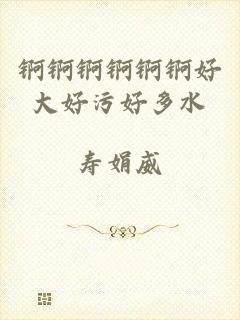 锕锕锕锕锕锕好
大好污好多水
寿娟威